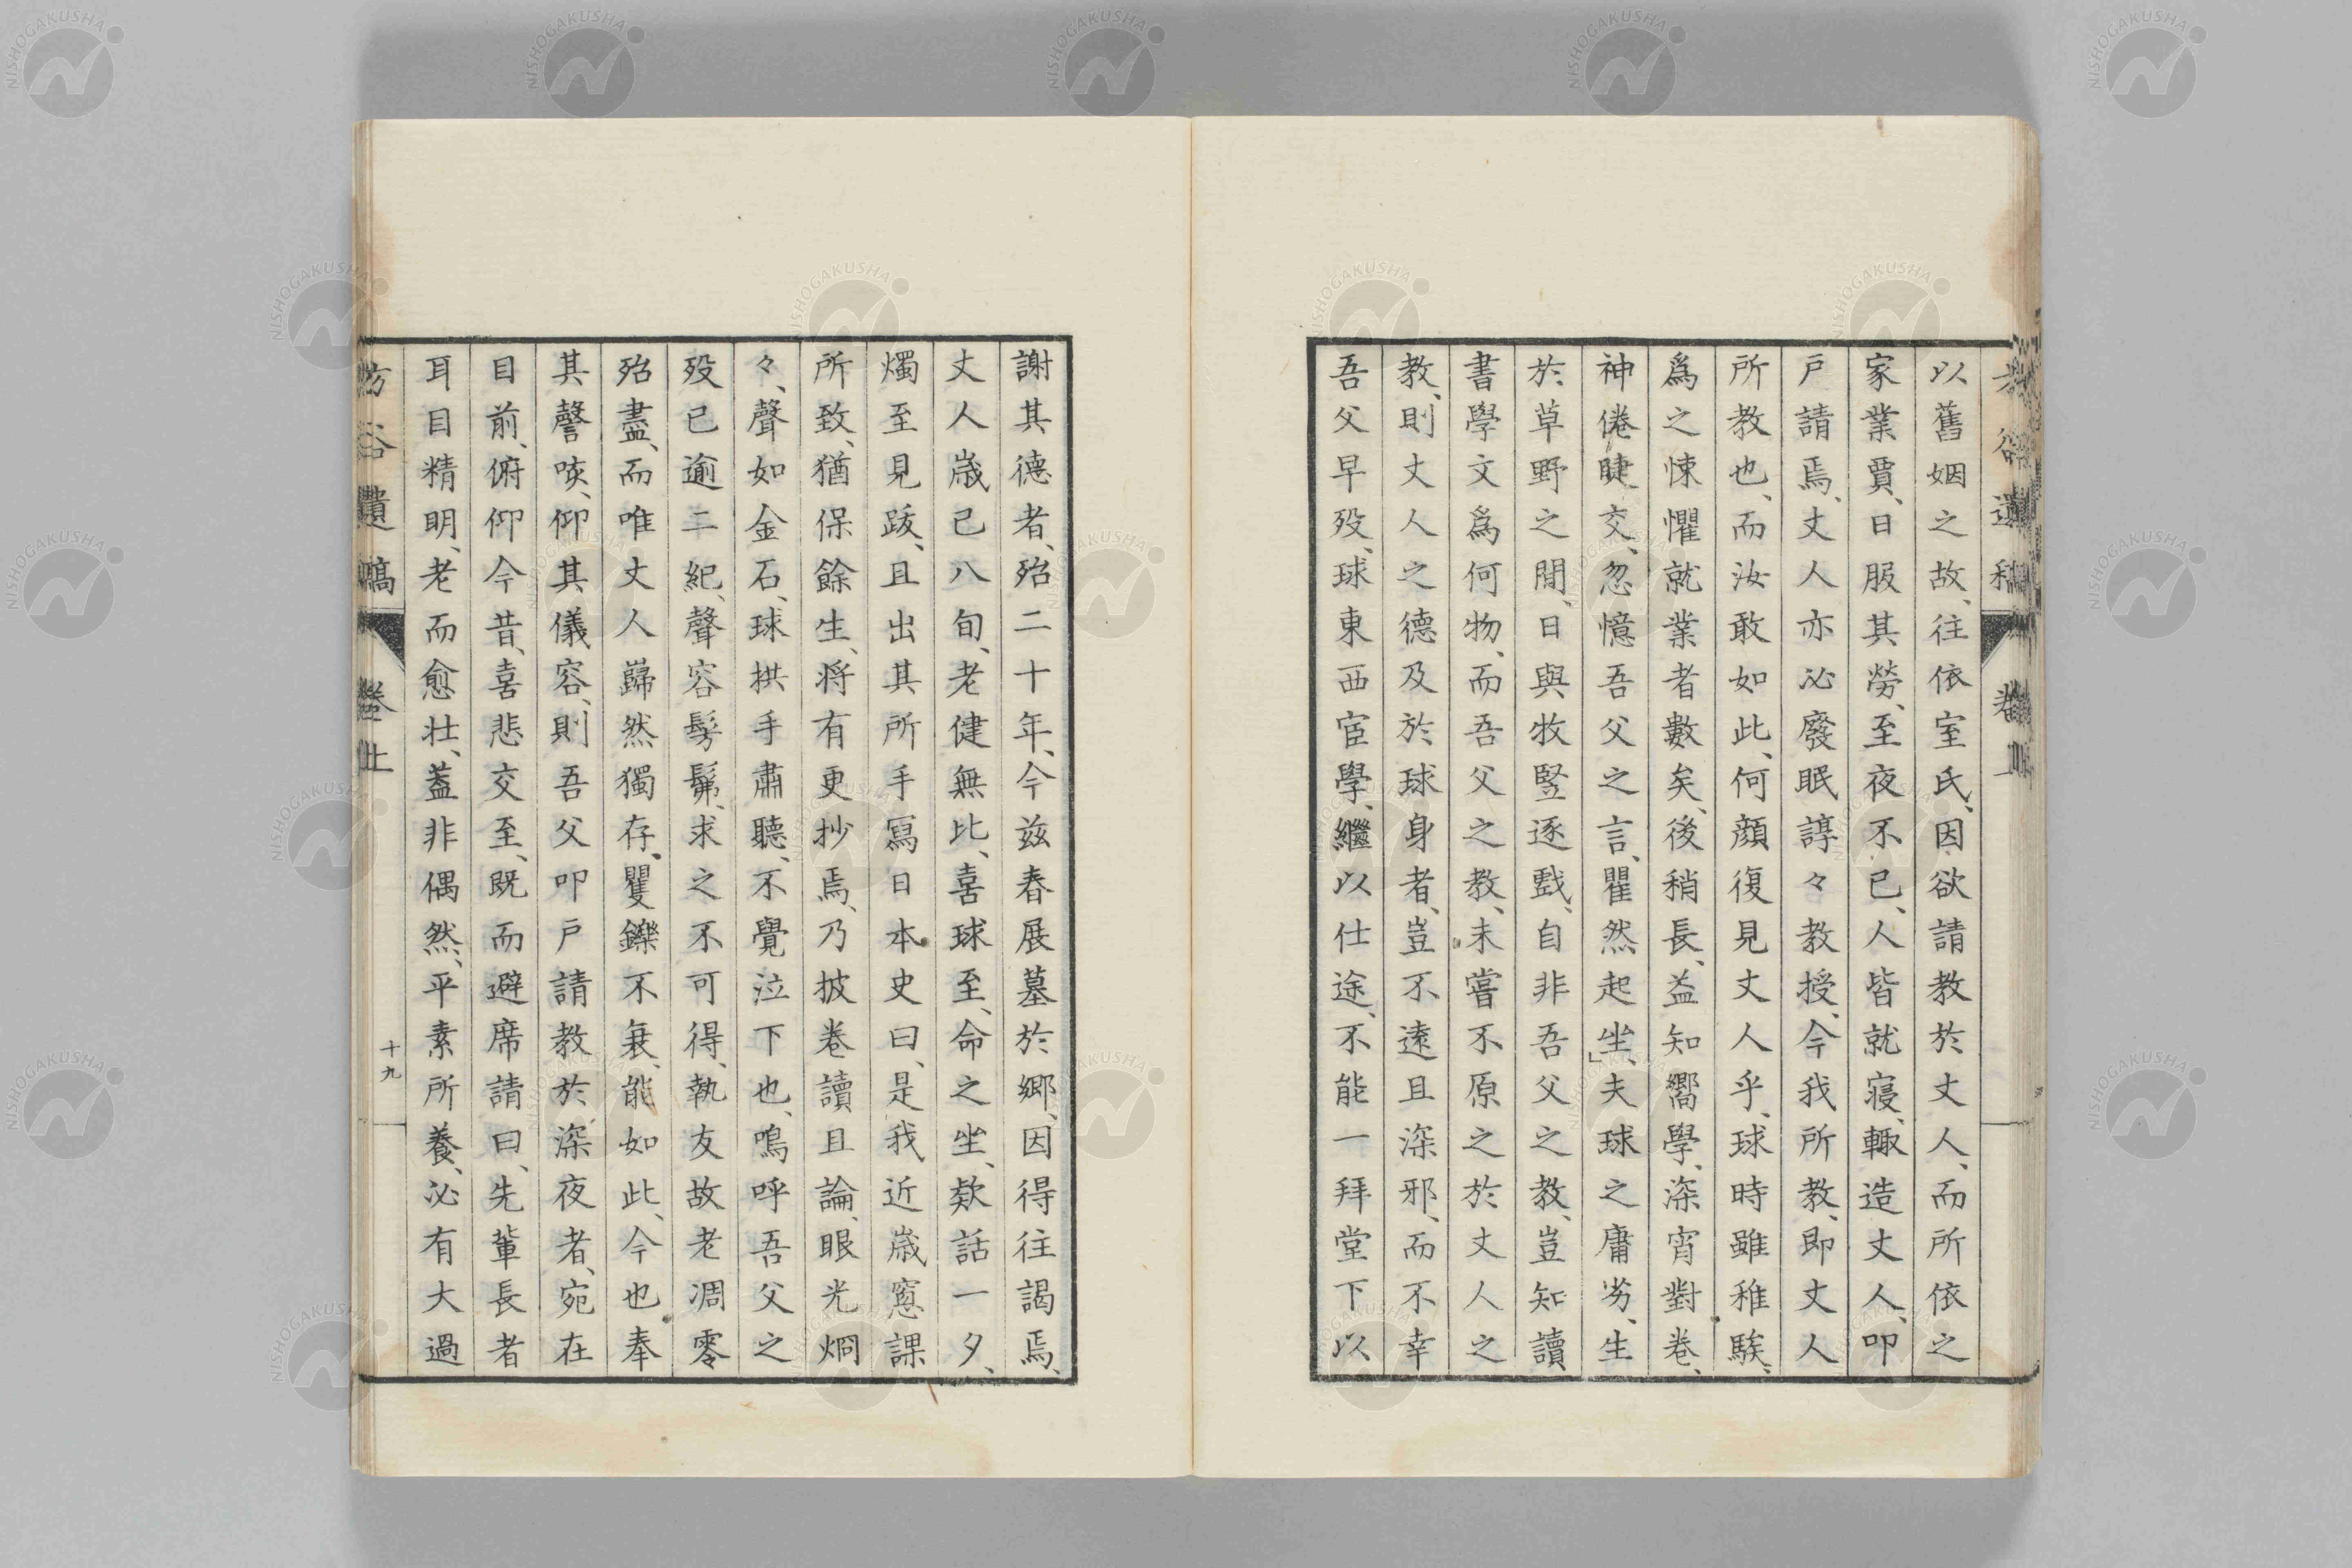 以舊姻之故、往依室氏、因欲請教於丈人、而所依之
家業賈、日服其勞、至夜不已、人皆就寢、輙造丈人、叩
戶請焉、丈人亦必廢眠諄々教授、今我所教、即丈人
所教也、而汝敢如此、何顔復見丈人乎、球時雖稚騃、
爲之悚懼就業者數矣、後稍長、益知嚮學、深宵對卷、
神倦睫交、忽憶吾父之言、瞿然起坐、夫球之庸劣、生
於草野之間、日與牧豎逐戲、自非吾父之教、豈知讀
書學文爲何物、而吾父之教、未嘗不原之於丈人之
教、則丈人之德及於球身者、豈不遠且深邪、而不幸
吾父早歿、球東西宦學、繼以仕途、不能一拜堂下以
謝其德者、殆二十年、今茲春展墓於鄉、因得往謁焉、
丈人歲已八旬、老健無比、喜球至、命之坐、欵話一夕、
燭至見跋、且出其所手寫日本史曰、是我近歲窻課
所致、猶保餘生、將有更抄焉、乃披卷讀且論、眼光烱
々、聲如金石、球拱手肅聽、不覺泣下也、嗚呼吾父之
歿已逾二紀、聲容髣髴、求之不可得、執友故老凋零
殆盡、而唯丈人巋然獨存、矍鑠不衰、能如此、今也奉
其謦咳、仰其儀容、則吾父叩戶請教於深夜者、宛在
目前、俯仰今昔、喜悲交至、既而避席請曰、先輩長者
耳目精明、老而愈壯、蓋非偶然、平素所養、必有大過
卷上
十九